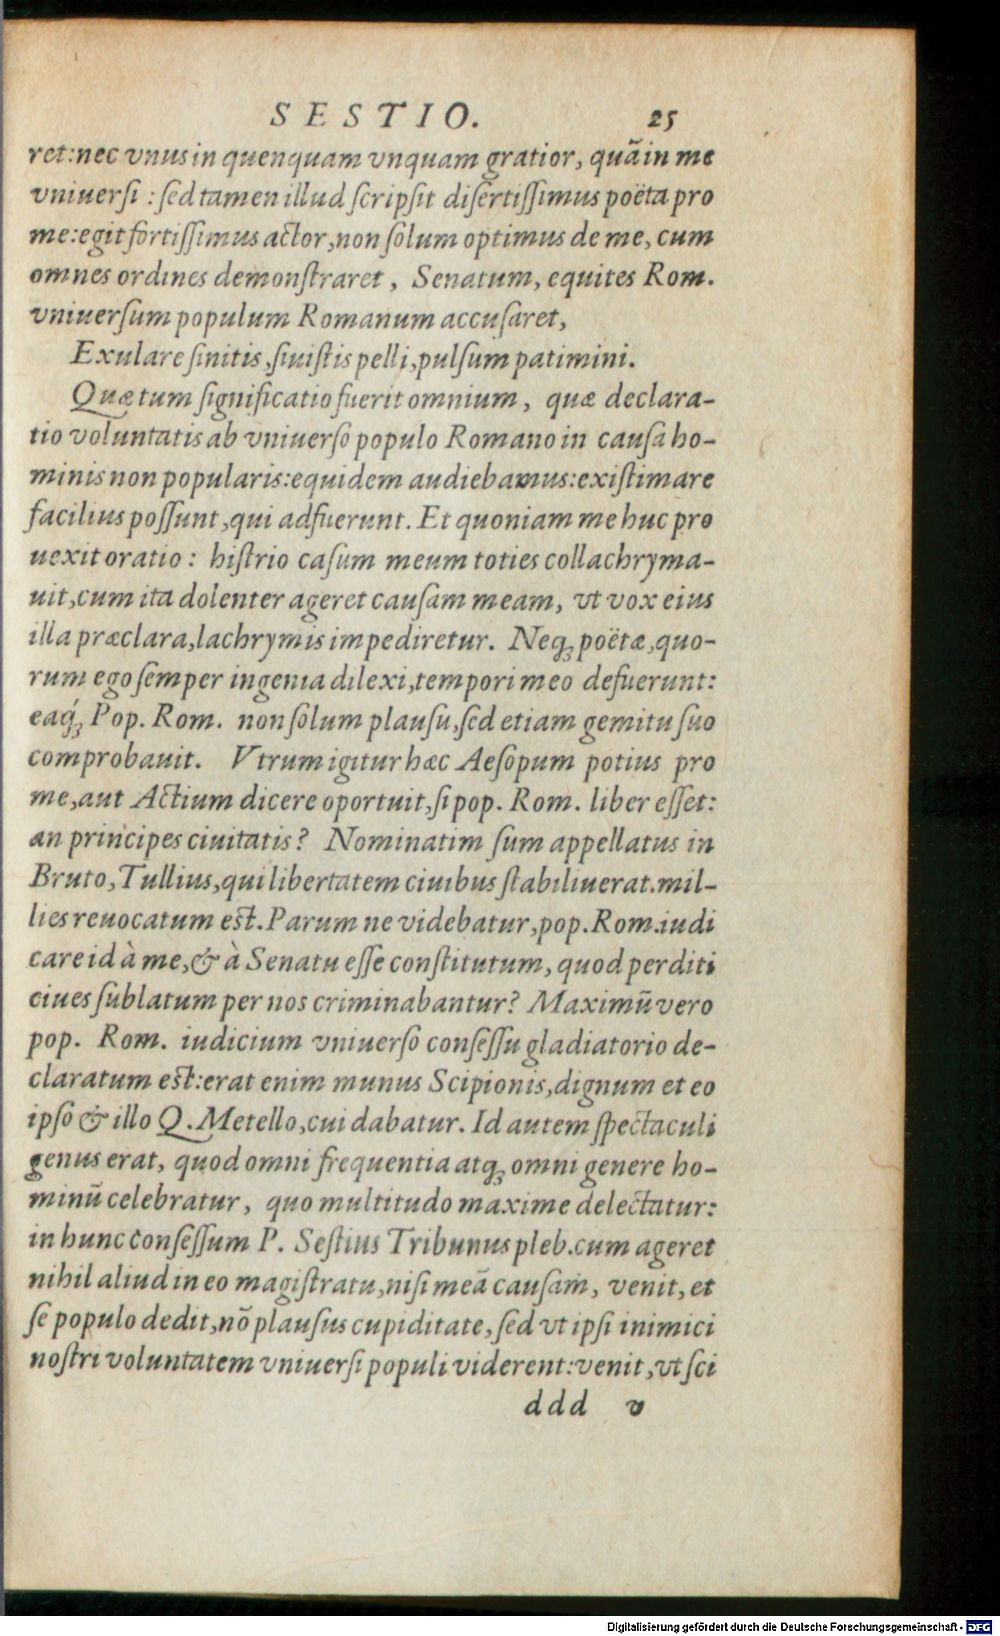 SESTIO. 25
ret:nec vnus in quenquam vnquam gratior, quā in me
vniuersi : sed tamen illud scripsit disertissimus poëta pro
me:egit fortissimus actor,non solum optimus de me, cum
omnes ordines demonstraret, Senatum, equites Rom.
vniuersum populum Romanum accusaret,
Exulare sinitis,siuistis pelli,pulsum patimini.
Quæ tum significatio fuerit omnium, quæ declara-
tio voluntatis ab vniuerso populo Romano in causa ho-
minis non popularis:equidem audiebamus:existimare
facilius possunt,qui adfuerunt. Et quoniam me huc pro
uexit oratio: histrio casum meum toties collachryma-
uit,cum ita dolenter ageret causam meam, vt vox eius
illa præclara,lachrymis impediretur. Neq; poëtæ,quo-
rum ego semper ingenia dilexi,tempori meo defuerunt:
eaq́; Pop. Rom. non solum plausu,sed etiam gemitu suo
comprobauit. Vtrum igitur hæc Aesopum potius pro
me,aut Actium dicere oportuit,si pop. Rom. liber esset:
an principes ciuitatis? Nominatim sum appellatus in
Bruto,Tullius,qui libertatem ciuibus stabiliuerat.mil-
lies reuocatum est.Parum ne videbatur,pop.Rom.iudi
care id à me,& à Senatu esse constitutum, quod perditi
ciues sublatum per nos criminabantur? Maximū vero
pop. Rom. iudicium vniuerso consessu gladiatorio de-
claratum est:erat enim munus Scipionis,dignum et eo
ipso & illo Q.Metello,cui dabatur. Id autem spectaculi
genus erat, quod omni frequentia atq; omni genere ho-
minū celebratur, quo multitudo maxime delectatur:
in hunc consessum P. Sestius Tribunus pleb.cum ageret
nihil aliud in eo magistratu,nisi meā causam, venit,et
se populo dedit,nō plausus cupiditate,sed vt ipsi inimici
nostri voluntatem vniuersi populi viderent:venit,vt sci
ddd v
Digitalisierung gefördert durch die Deutsche Forschungsgemeinschaft - DFG